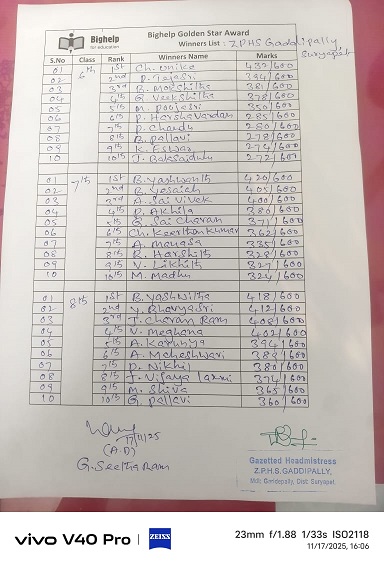 Bighelp
for education
Bighelp Golden Star Award
Winners List : Z.P.H.S Gaddipally
Suryapet
S.No Class Rank Winners Name Marks
01 6th 1st Ch. Unice 432/600
02 2nd P. Tejasri 394/600
03 3rd B. Morchitha 381/600
04 4th G. Veekshitha 378/600
05 5th M. Poojasri 350/600
06 6th P. Harsha Vardan 285/600
07 7th P. Chandu 280/600
08 8th B. Pallavi 278/600
09 9th K. Eswar 274/600
10 10th J. Baksaidulu 272/600
01 7th 1st B. Yashwanth 420/600
02 2nd B. Yesaiah 405/600
03 3rd A. Sai Vivek 400/600
04 4th P. Akhila 380/600
05 5th G. Sai Charan 371/600
06 6th Ch. Keerthan Kumar 362/600
07 7th A. Manasa 335/600
08 8th R. Harshith 328/600
09 9th V. Likhith 327/600
10 10th M. Madhu 324/600
01 8th 1st B. Yashwitha 418/600
02 2nd Y. Bhavyasri 412/600
03 3rd T. Charan Ram 408/600
04 4th V. Meghana 402/600
05 5th A. Kaveya 394/600
06 6th A. Maheshwari 389/600
07 7th P. Nikhil 380/600
08 8th J. Vijaya Laxmi 374/600
09 9th M. Shiva 365/600
10 10th G. Pallavi 360/600
17/11/25
G. Seetha Ram
Gazetted Headmistress
Z.P.H.S.GADDIPALLY,
Mdl: Garidepally, Dist: Suryapet.
vivo V40 Pro | ZEISS
23mm f/1.88 1/33s ISO2118
11/17/2025, 16:06